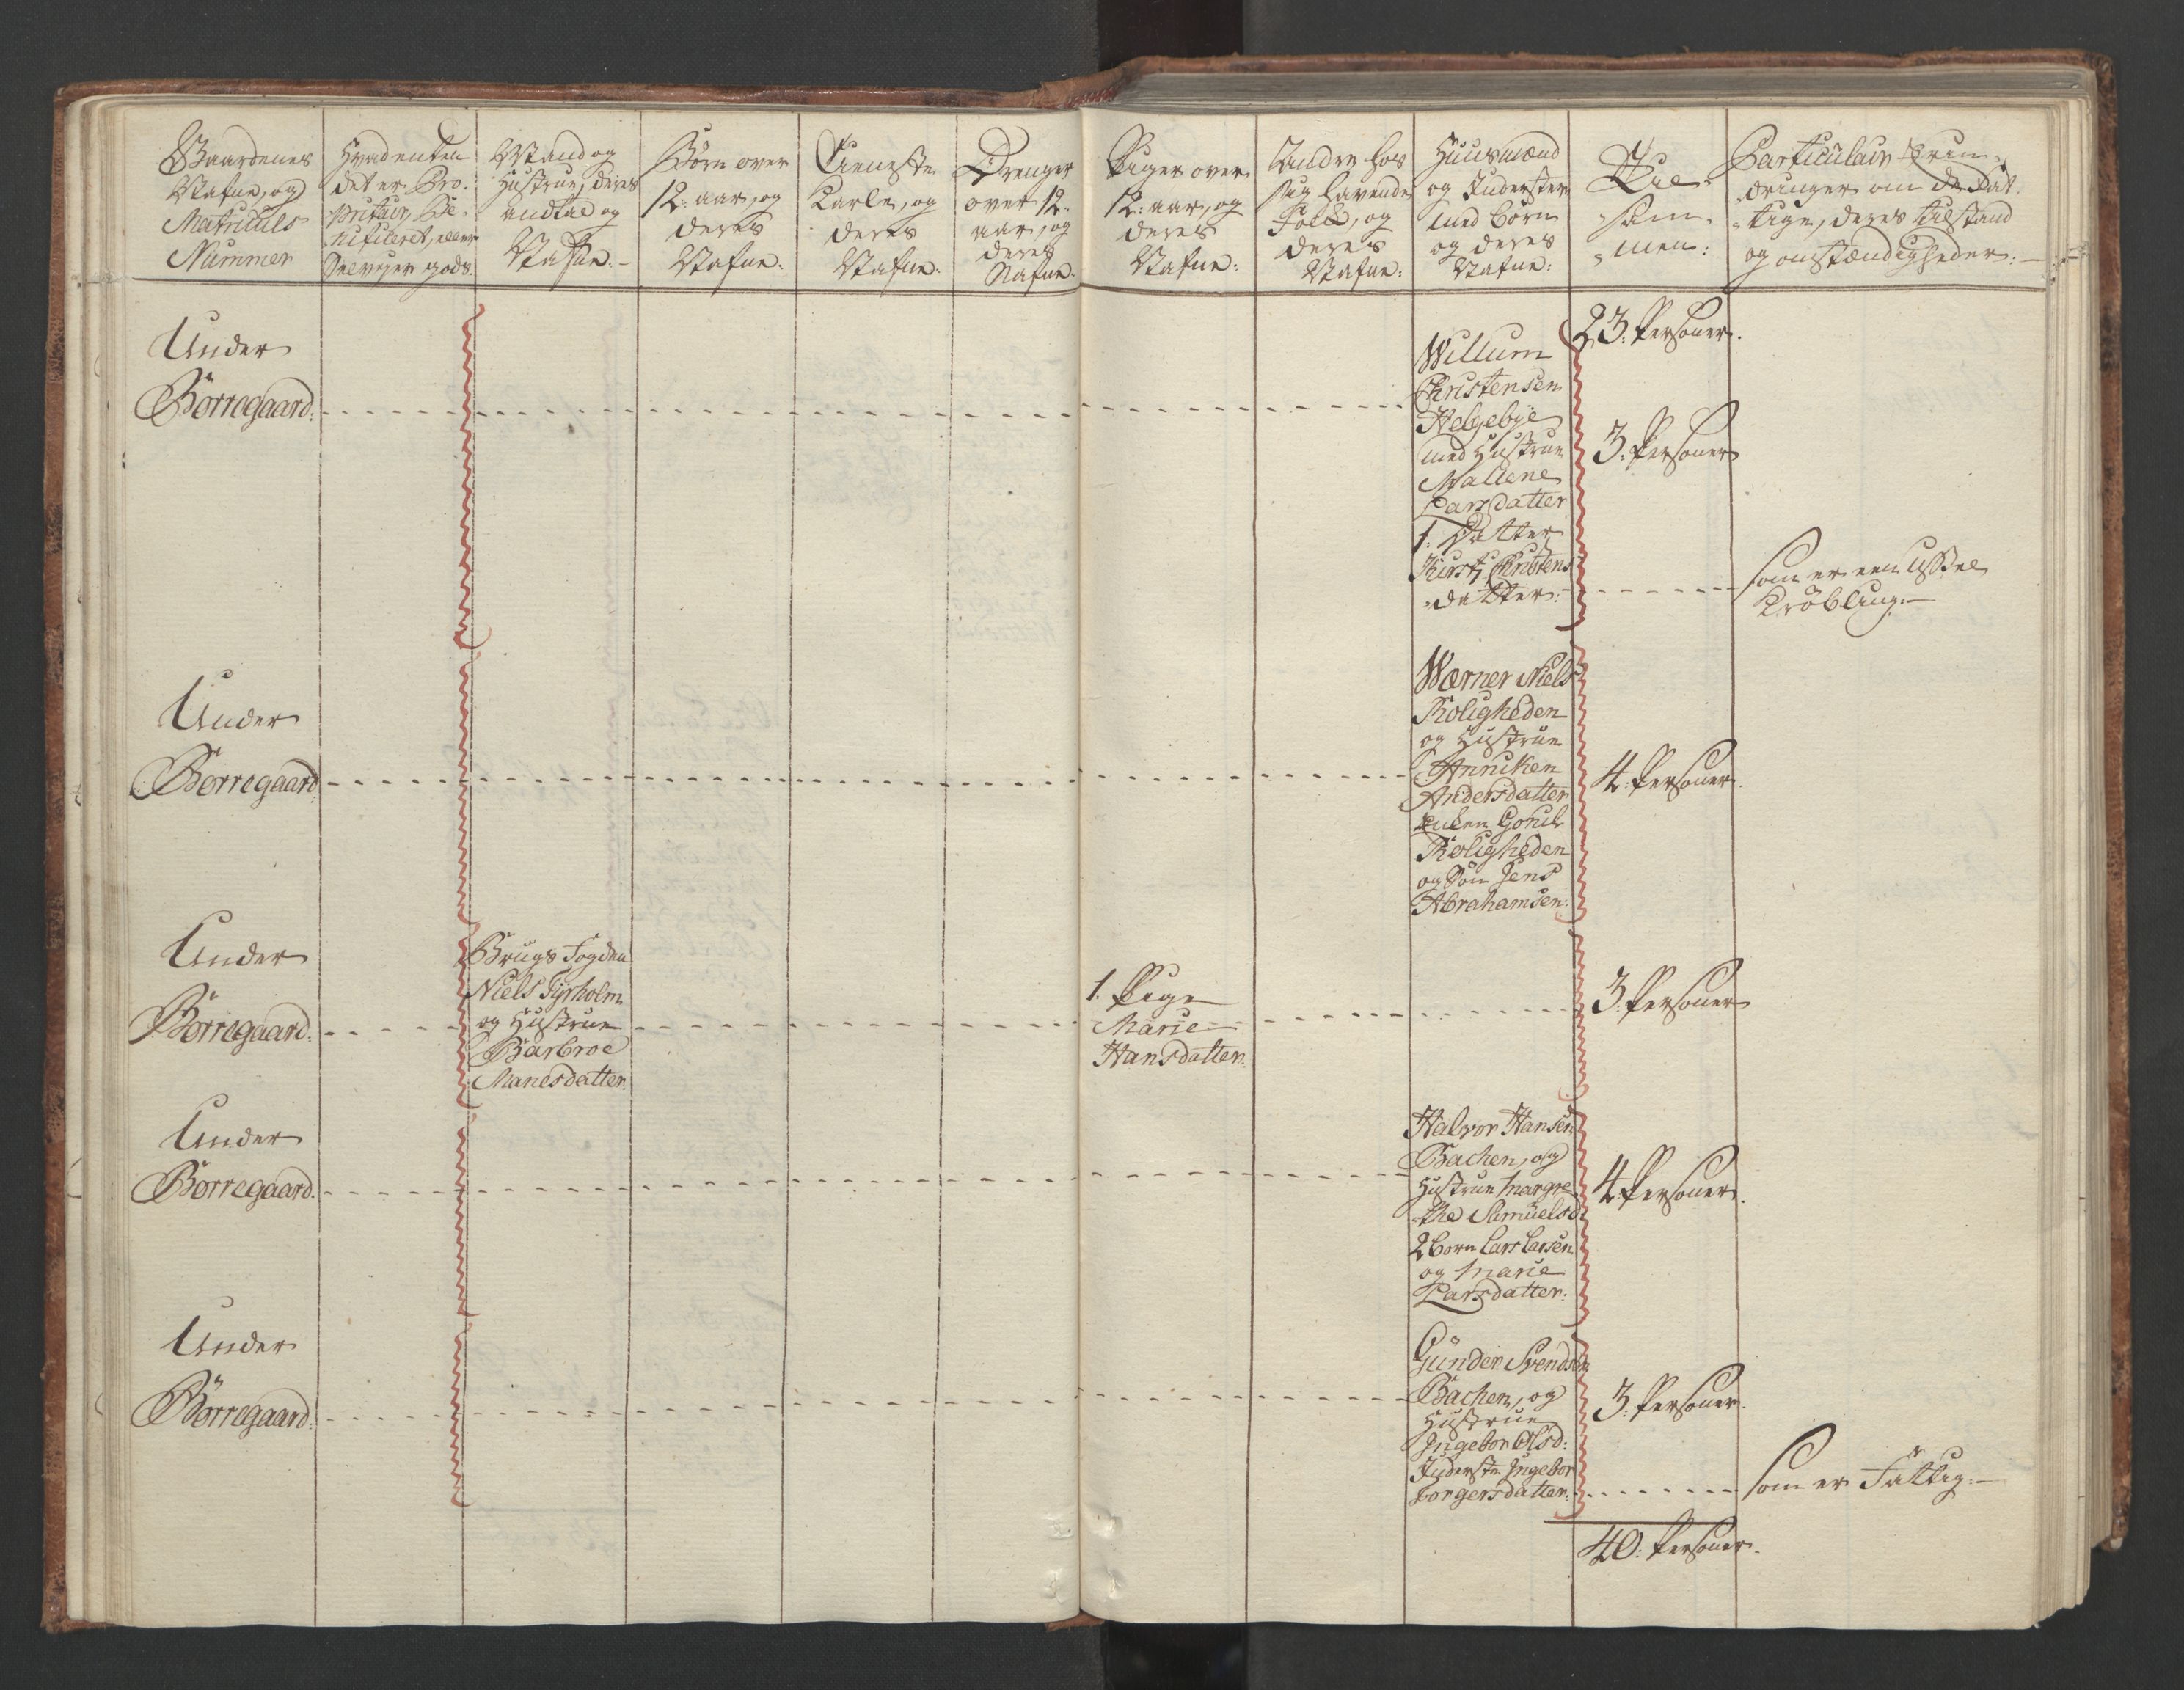 Gaardenes
Nafne, og
Matriculs
Nummer
Hvad enten
det er Pro-
prietair, Be-
nificeret, eller
Selvejer gods.
Mand og
Hustrue, deres
andtal og
Nafne.
Børn over
12: aar, og
deres
Nafne:
Tieneste
Karle, og
deres
Nafne:
Drenger
over 12:
aar, og
deres
Nafne.
Piger over
12: aar, og
deres
Nafne:
Andre hos
sig havende
Folk, og
deres
Nafne:
Huusmænd
og Inderster
med børn
og deres
Nafne:
Til-
sam-
men:
Particulair Erin-
dringer om de Fat-
tige, deres tilstand
og omstændigheder:
23: Personer.
Under
Borregaard:
Willum
Christensen
Helgebye
med Hustrue
Mallene
Larsdatter
1: Datter
Kirsti Christens
datter:
3: Personer
som er een ussel
Krøbling:
Under
Borregaard
Wærner Niels
Roligheden
og Hustrue
Anniken
Andersdatter
Enken Gonil
Roligheden
og Søn Jens
Abrahamsen:
4: Personer.
Under
Borregaard:
Brugs Fogden
Niels Fyrholm
og Hustrue
Barbroe
Manesdatter.
1. Pige
Marie
Hansdatter.
3: Personer
Under
Borregaard.
Halvor Hansen
Bachen, og
Hustrue Margre
the Samuelsd:
2 born Lars Larsen
og Marie
Larsdatter:
4 Personer.
Under
Borregaard:
Gunder Svendsen
Bachen, og
Hustrue
Ingebor Olsd:
Inderste Ingebor
Torgersdatter:
3: Personer.
som er Fattig:
40: Personer.